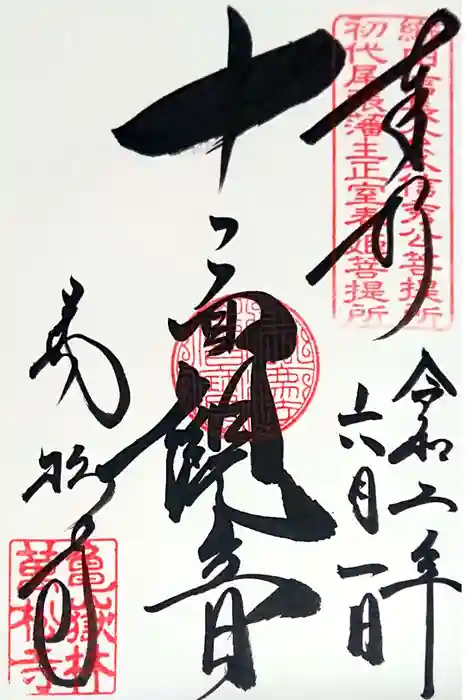 奉拝
初代尾張藩主正室春姫菩提所
令和二年
六月一日
十一面観音
萬松寺
亀嶽林
萬松寺